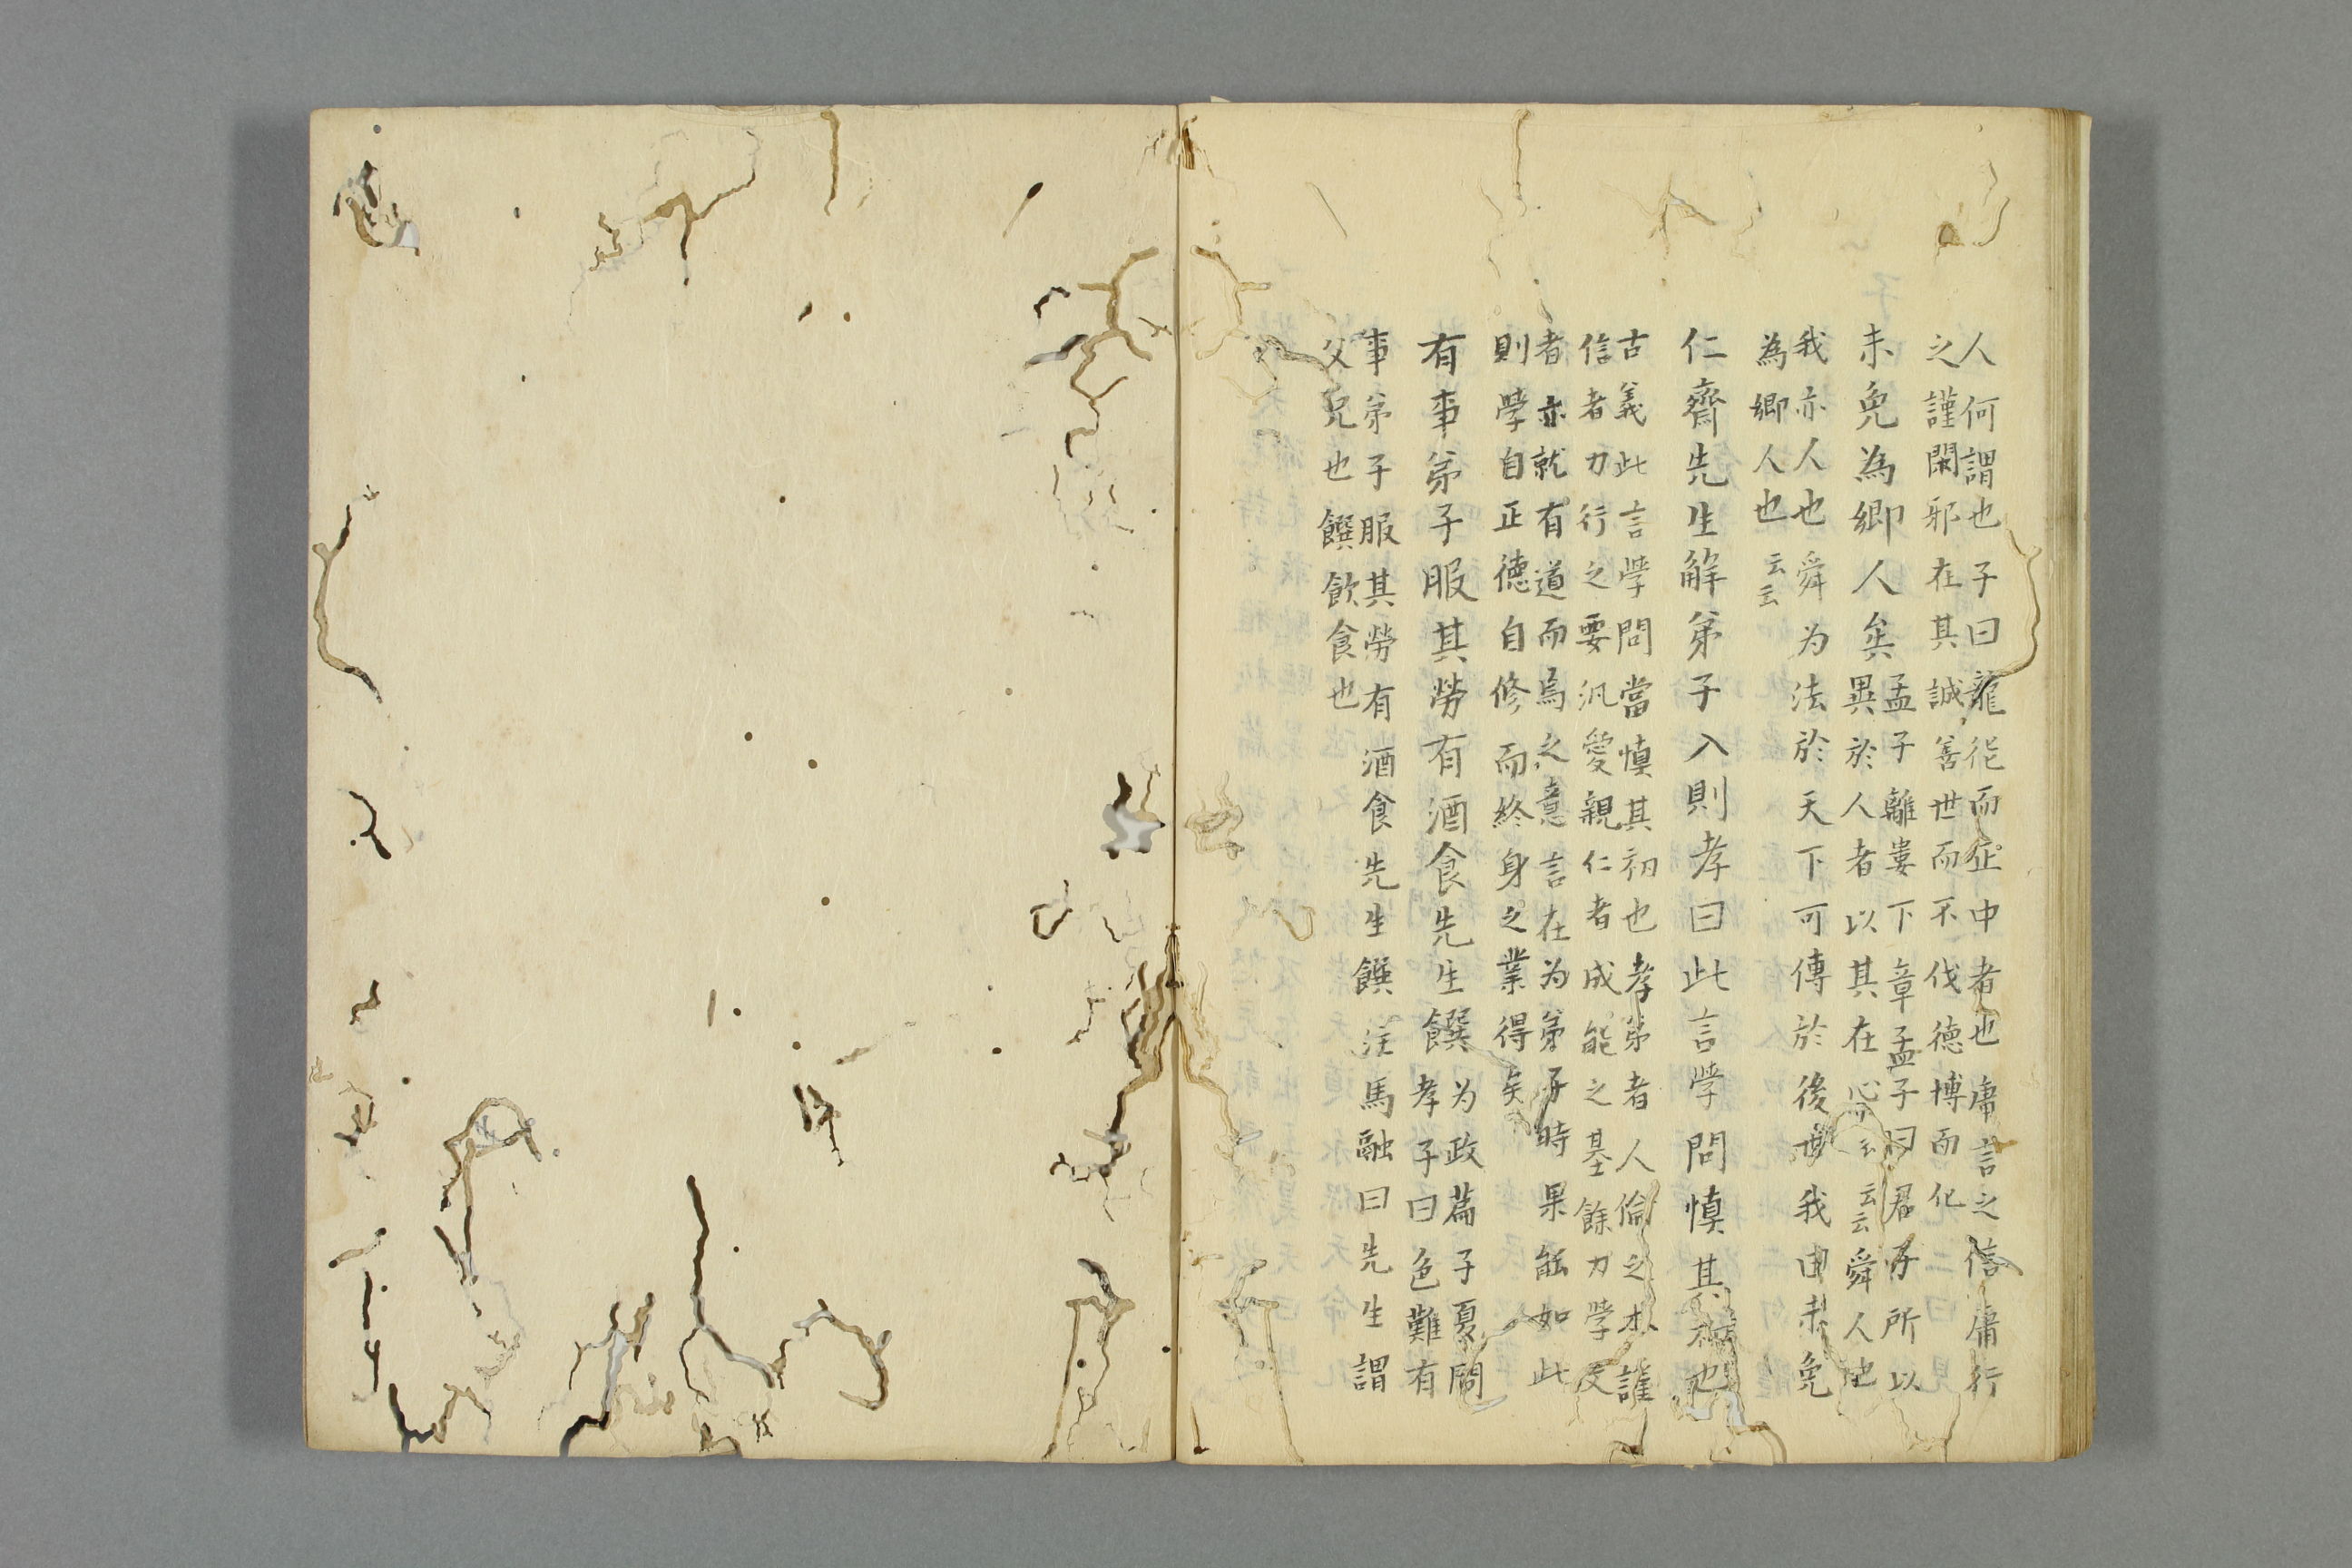 人何謂也子曰龍德而正中者也庸言之信庸行
之謹閑邪在其誠善世而不伐德博而化
未免為鄉人矣
孟子離婁下章孟子曰君子所以
異於人者以其在心云云舜人也
我亦人也舜为法於天下可傳於後世我由未免
為鄉人也云云
仁齋先生解弟子入則孝曰此言學問慎其初也
古義此言學問當慎其初也孝弟者人倫之本謹
信者力行之要汎愛親仁者成能之基餘力學文
者亦就有道而焉之意言在为弟子時果能如此
則學自正德自修而終身之業得矣
有事弟子服其勞有酒食先生饌
为政篇子夏問
孝子曰色難有
事弟子服其勞有酒食先生饌注馬融曰先生謂
父兄也饌飲食也